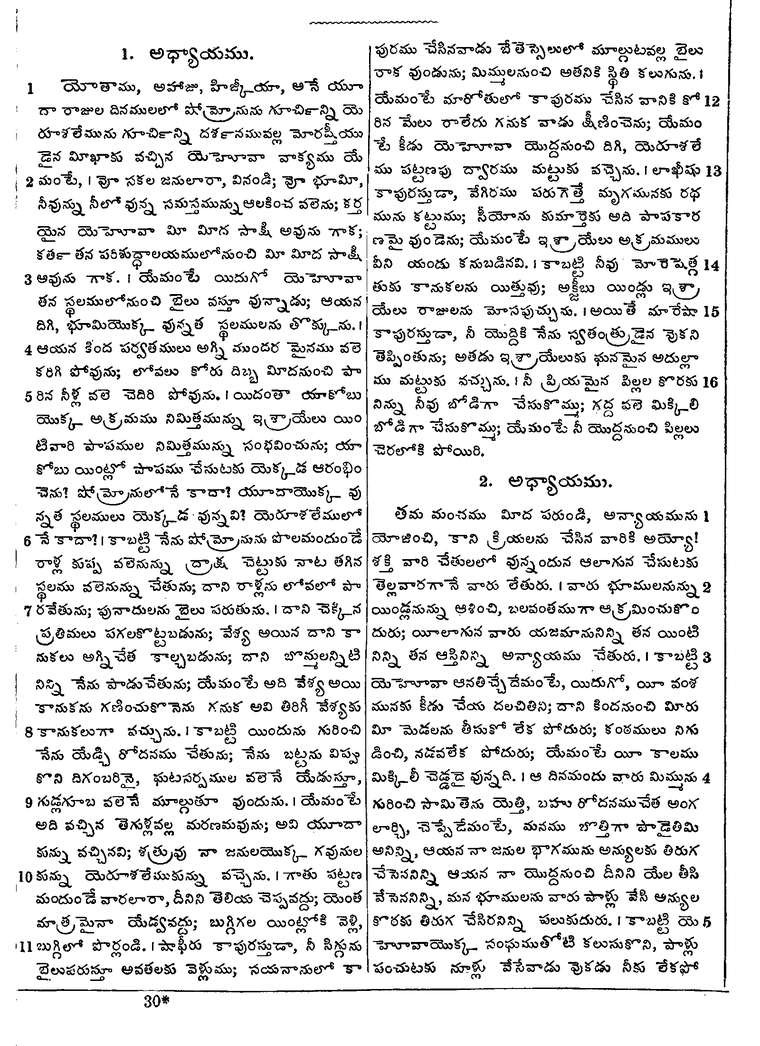 1. అధ్యాయము.
1 యోతాము, అహాజు, హిజ్కీయా, అనే యూ
దా రాజుల దినములలో షోమ్రోనును గూచిన్ని యె
రూశలేమును గూచిన్ని దశనమువల్ల మోరష్తీయు
డైన మీఖాకు వచ్చిన యెహోవా వాక్యము యే
2 మంటే, । వో సకల జనులారా, వినండి; వో భూమీ,
నీవున్ను నీలో వున్న సమస్తమున్ను ఆలకించ వలెను; కర్త
యైన యెహోవా మీ మీద సాక్షి అవును గాక;
కతా తన పరిశుద్ధాలయములోనుంచి మీ మీద సాక్షి
3 అవును గాక. । యేమంటే యిదుగో యెహోవా
తన స్థలములోనుంచి బైలు వస్తూ వున్నాడు; ఆయన
దిగి, భూమియొక్క వున్నత స్థలములను తొక్కును. ।
4 ఆయన కింద పర్వతములు అగ్ని ముందర మైనము వలె
కరిగి పోవును; లోవలు కోరు దిబ్బ మీదనుంచి పా
5 రిన నీళ్ల వలె చెదిరి పోవును. । యిదంతా యాకోబు
యొక్క అక్రమము నిమిత్తమున్ను ఇశ్రాయేలు యిం
టివారి పాపముల నిమిత్తమున్ను సంభవించును; యా
కోబు యింట్లో పాపము చేసుటకు యెక్కడ ఆరంభిం
చెను? షోమ్రోనులోనే కాదా? యూదాయొక్క వు
న్నత స్థలములు యెక్కడ వున్నవి? యెరూశలేములో
6 నే కాదా? । కాబట్టి నేను షోమ్రోనును పొలమందుండే
రాళ్ల కుప్ప వలెనున్ను ద్రాక్ష చెట్టుకు నాట తగిన
స్థలము వలెనున్ను చేతును; దాని రాళ్లను లోవలో పా
7 రవేతును; పునాదులను బైలు పరుతును. । దాని చెక్కిన
ప్రతిమలు పగలకొట్టబడును; వేశ్య అయిన దాని కా
నుకలు అగ్నిచేత కాల్చబడును; దాని బొమ్మలన్నిటి
నిన్ని నేను పాడుచేతును; యేమంటే అది వేశ్య అయి
కానుకను గణించుకొనెను గనుక అవి తిరిగీ వేశ్యకు
8 కానుకలుగా వచ్చును. । కాబట్టి యిందును గురించి
నేను యేడ్చి రోదనము చేతును; నేను బట్టను విప్పు
కొని దిగంబరినై, ఘటసర్పముల వలెనే యేడుస్తూ,
9 గుడ్లగూబ వలెనే మూల్గుతూ వుందును. । యేమంటే
అది వచ్చిన తెగుళ్లవల్ల మరణమవును; అవి యూదా
కున్ను వచ్చినవి; శత్రువు నా జనులయొక్క గవునుల
10 కున్ను యెరూశలేముకున్ను వచ్చెను. । గాతు పట్టణ
మందుండే వారలారా, దీనిని తెలియ చెప్పవద్దు; యెంత
మాత్రమైనా యేడ్వవద్దు; బుగ్గిగల యింట్లోకి వెళ్లి,
11 బుగ్గిలో పొర్లండి. । షాఫీరు కాపురస్తుడా, నీ సిగ్గును
బైలుపరుస్తూ అవతలకు వెళ్లుము; సయనానులో కా
పురము చేసినవాడు బేతెస్సెలులో మూల్గుటవల్ల బైలు
రాక వుండును; మిమ్ములనుంచి అతనికి స్థితి కలుగును. ।
యేమంటే మారోతులో కాపురము చేసిన వానికి కో 12
రిన మేలు రాలేదు గనుక వాడు క్షీణించెను; యేమం
టే కీడు యెహోవా యొద్దనుంచి దిగి, యెరూశలే
ము పట్టణపు ద్వారము మట్టుకు వచ్చెను. । లాఖీషు 13
కాపురస్తుడా, వేగిరము పరుగెత్తే మృగమునకు రథ
మును కట్టుము; సీయోను కుమార్తెకు అది పాపకార
ణమై వుండెను; యేమంటే ఇశ్రాయేలు అక్రమములు
నీని యండు కనుబడినవి. । కాబట్టి నీవు మోరెషెత్గ 14
తుకు కానుకలను యిత్తువు; అక్జీబు యిండ్లు ఇశ్రా
యేలు రాజులను మోసపుచ్చును. । అయితే మారేషా 15
కాపురస్తుడా, నీ యొద్దికి నేను స్వతంత్రుడైన వొకని
తెప్పింతును; అతడు ఇశ్రాయేలుకు ఘనమైన అదుల్లా
ము మట్టుకు వచ్చును. । నీ ప్రియమైన పిల్లల కొరకు 16
నిన్ను నీవు బోడిగా చేసుకొమ్ము; గద్ద వలె మిక్కిలీ
బోడిగా చేసుకొమ్ము; యేమంటే నీ యొద్దనుంచి పిల్లలు
చెరలోకి పోయిరి.
2. అధ్యాయము.
తమ మంచము మీద పరుండి, అన్యాయమును 1
యోజించి, కాని క్రియలను చేసిన వారికి అయ్యో!
శక్తి వారి చేతులలో వున్నందున ఆలాగున చేసుటకు
తెల్లవారగానే వారు లేతురు. । వారు భూములనున్ను 2
యిండ్లనున్ను ఆశించి, బలవంతముగా ఆక్రమించుకొం
దురు; యీలాగున వారు యజమానునిన్ని తన యింటి
నిన్ని తన ఆస్తినిన్ని అన్యాయము చేతురు. । కాబట్టి 3
యెహోవా ఆనతిచ్చేదేమంటే, యిదుగో, యీ వంశ
మునకు కీడు చేయ దలచితిని; దాని కిందనుంచి మీరు
మీ మెడలను తీసుకో లేక పోదురు; కంఠములు నిగు
డించి, నడవలేక పోదురు; యేమంటే యీ కాలము
మిక్కిలీ చెడ్డదై వున్నది. । ఆ దినమందు వారు మిమ్మును 4
గురించి సామితెను యెత్తి, బహు రోదనముచేత అంగ
లార్చి, చెప్పేదేమంటే, మనము బొత్తిగా పాడైతిమి
అనిన్ని, ఆయన నా జనుల భాగమును అన్యులకు తిరుగ
చేసెననిన్ని ఆయన నా యొద్దనుంచి దీనిని యేల తీసి
వేసెననిన్ని, మన భూములను వారు పాళ్లు వేసి అన్యుల
కొరకు తిరుగ చేసిరనిన్ని పలుకుదురు. । కాబట్టి యె 5
హోవాయొక్క సంఘముతోటి కలుసుకొని, పాళ్లు
పంచుటకు నూళ్లు వేసేవాడు వొకడు నీకు లేకపో
30*